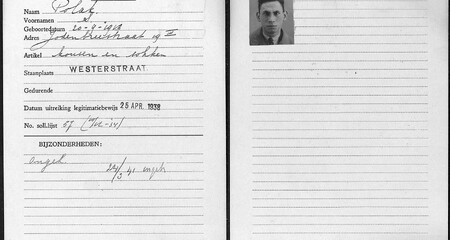 Naam Polak
Voornamen S
Geboortedatum
Adres Jodenbreestraat 19 II
Artikel kousen en sokken
Staanplaats WESTERSTRAAT.
Gedurende
Datum uitreiking legitimatiebewijs 25 APR. 1938
No. soll.lijst 57
BIJZONDERHEDEN: